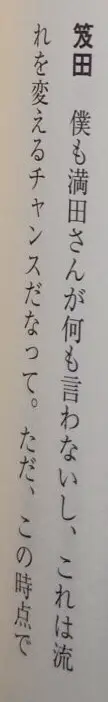 笈田　僕も満田さんが何も言わないし、これは流
れを変えるチャンスだなって。ただ、この時点で